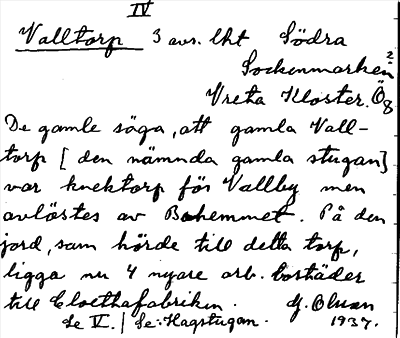 IV
Valltorp 3 avs. lht Södra
Sockenmarken 2
Vreta Kloster. Ög
De gamle säga, att gamla Vall-
torp [den nämnda gamla stugan]
var knektorp för Vallby men
avlöstes av Bohemmet. På den
jord, som hörde till detta torp,
ligga nu 4 nyare arb. bostäder
till Cloettafabriken. G. Olsson
Se V. / Se: Hagstugan. 1937.